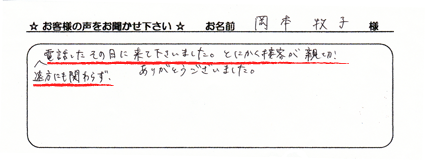 ☆ お客様の声をお聞かせ下さい ☆ お名前 岡本 牧子 様
電話したその日に来て下さいました。とにかく接客が親切
遠方にも関わらず、 ありがとうございました。